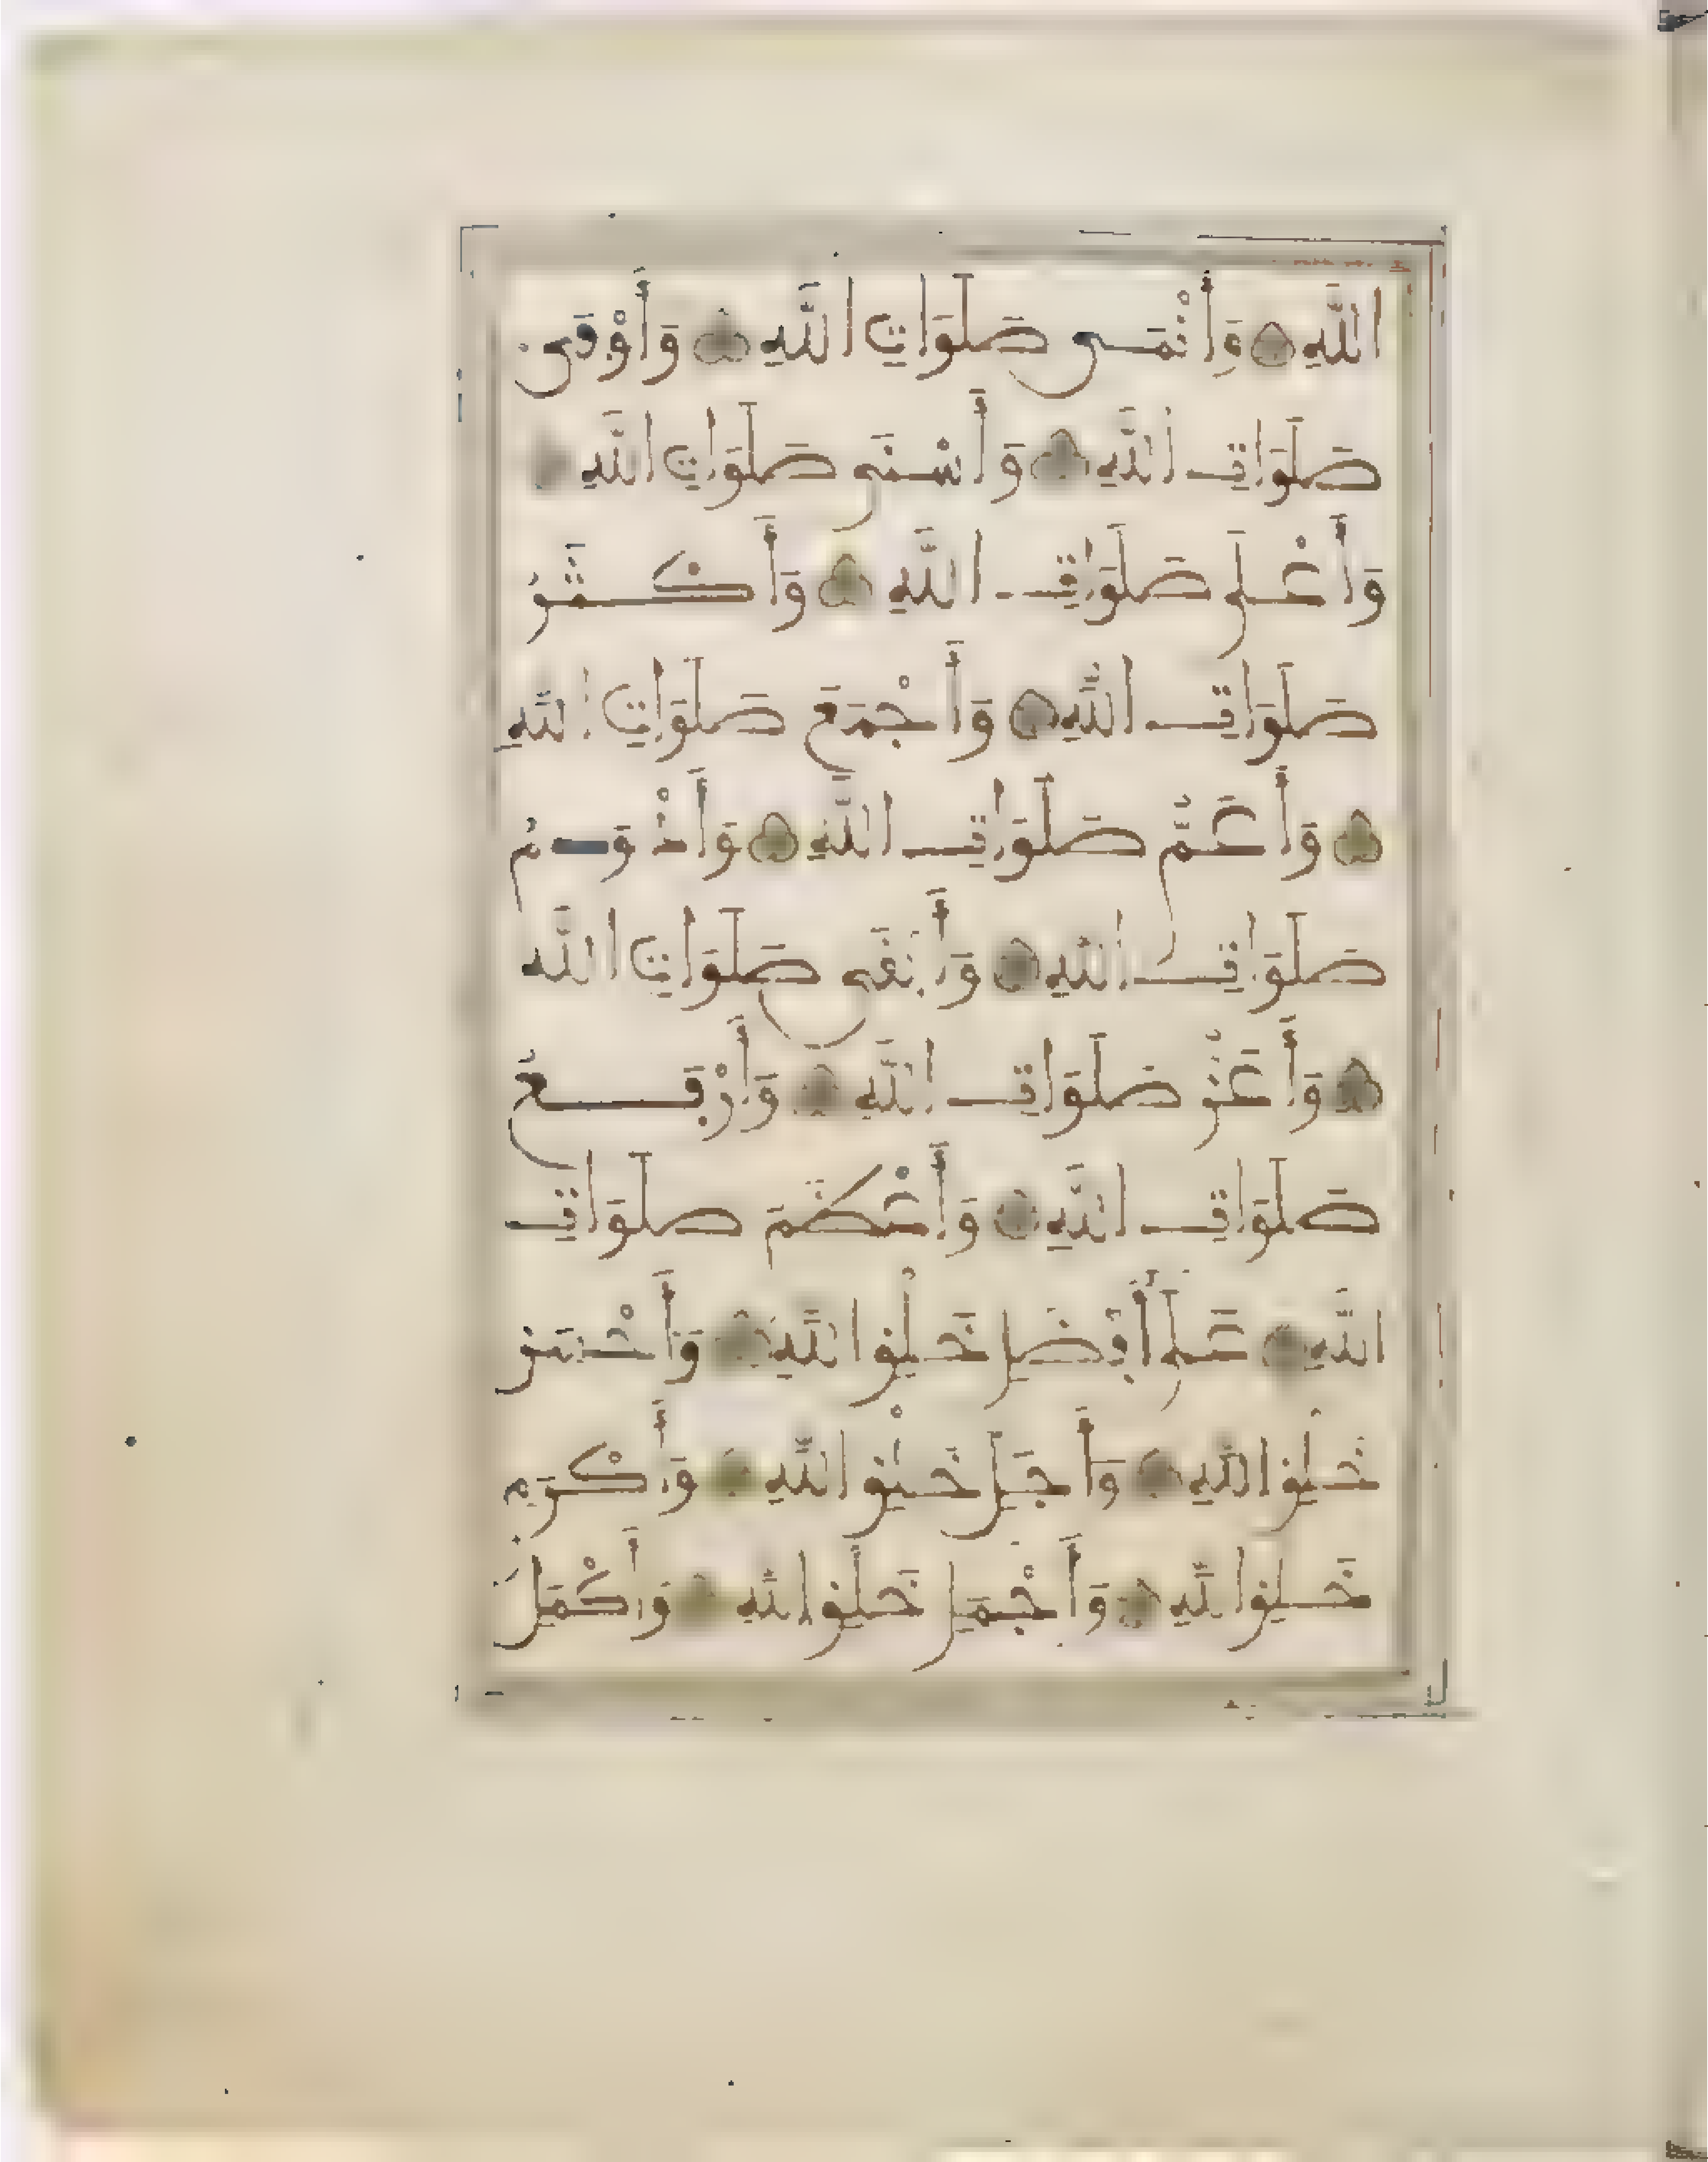 اللَّهِ وَأَنْمَى صَلَوَاتِ اللَّهِ وَأَوْفَى
صَلَوَاتِ اللَّهِ وَأَسْنَى صَلَوَاتِ اللَّهِ
وَأَعْلَى صَلَوَاتِ اللَّهِ وَأَكْثَرُ
صَلَوَاتِ اللَّهِ وَأَجْمَعُ صَلَوَاتِ اللَّهِ
وَأَعَمُّ صَلَوَاتِ اللَّهِ وَأَدْوَمُ
صَلَوَاتِ اللَّهِ وَأَبْقَى صَلَوَاتِ اللَّهِ
وَأَعَزُّ صَلَوَاتِ اللَّهِ وَأَرْفَعُ
صَلَوَاتِ اللَّهِ وَأَعْظَمُ صَلَوَاتِ
اللَّهِ عَلَى أَفْضَلِ خَلْقِ اللَّهِ وَأَحْسَنِ
خَلْقِ اللَّهِ وَأَجَلِّ خَلْقِ اللَّهِ وَأَكْرَمِ
خَلْقِ اللَّهِ وَأَجْمَلِ خَلْقِ اللَّهِ وَأَكْمَلِ